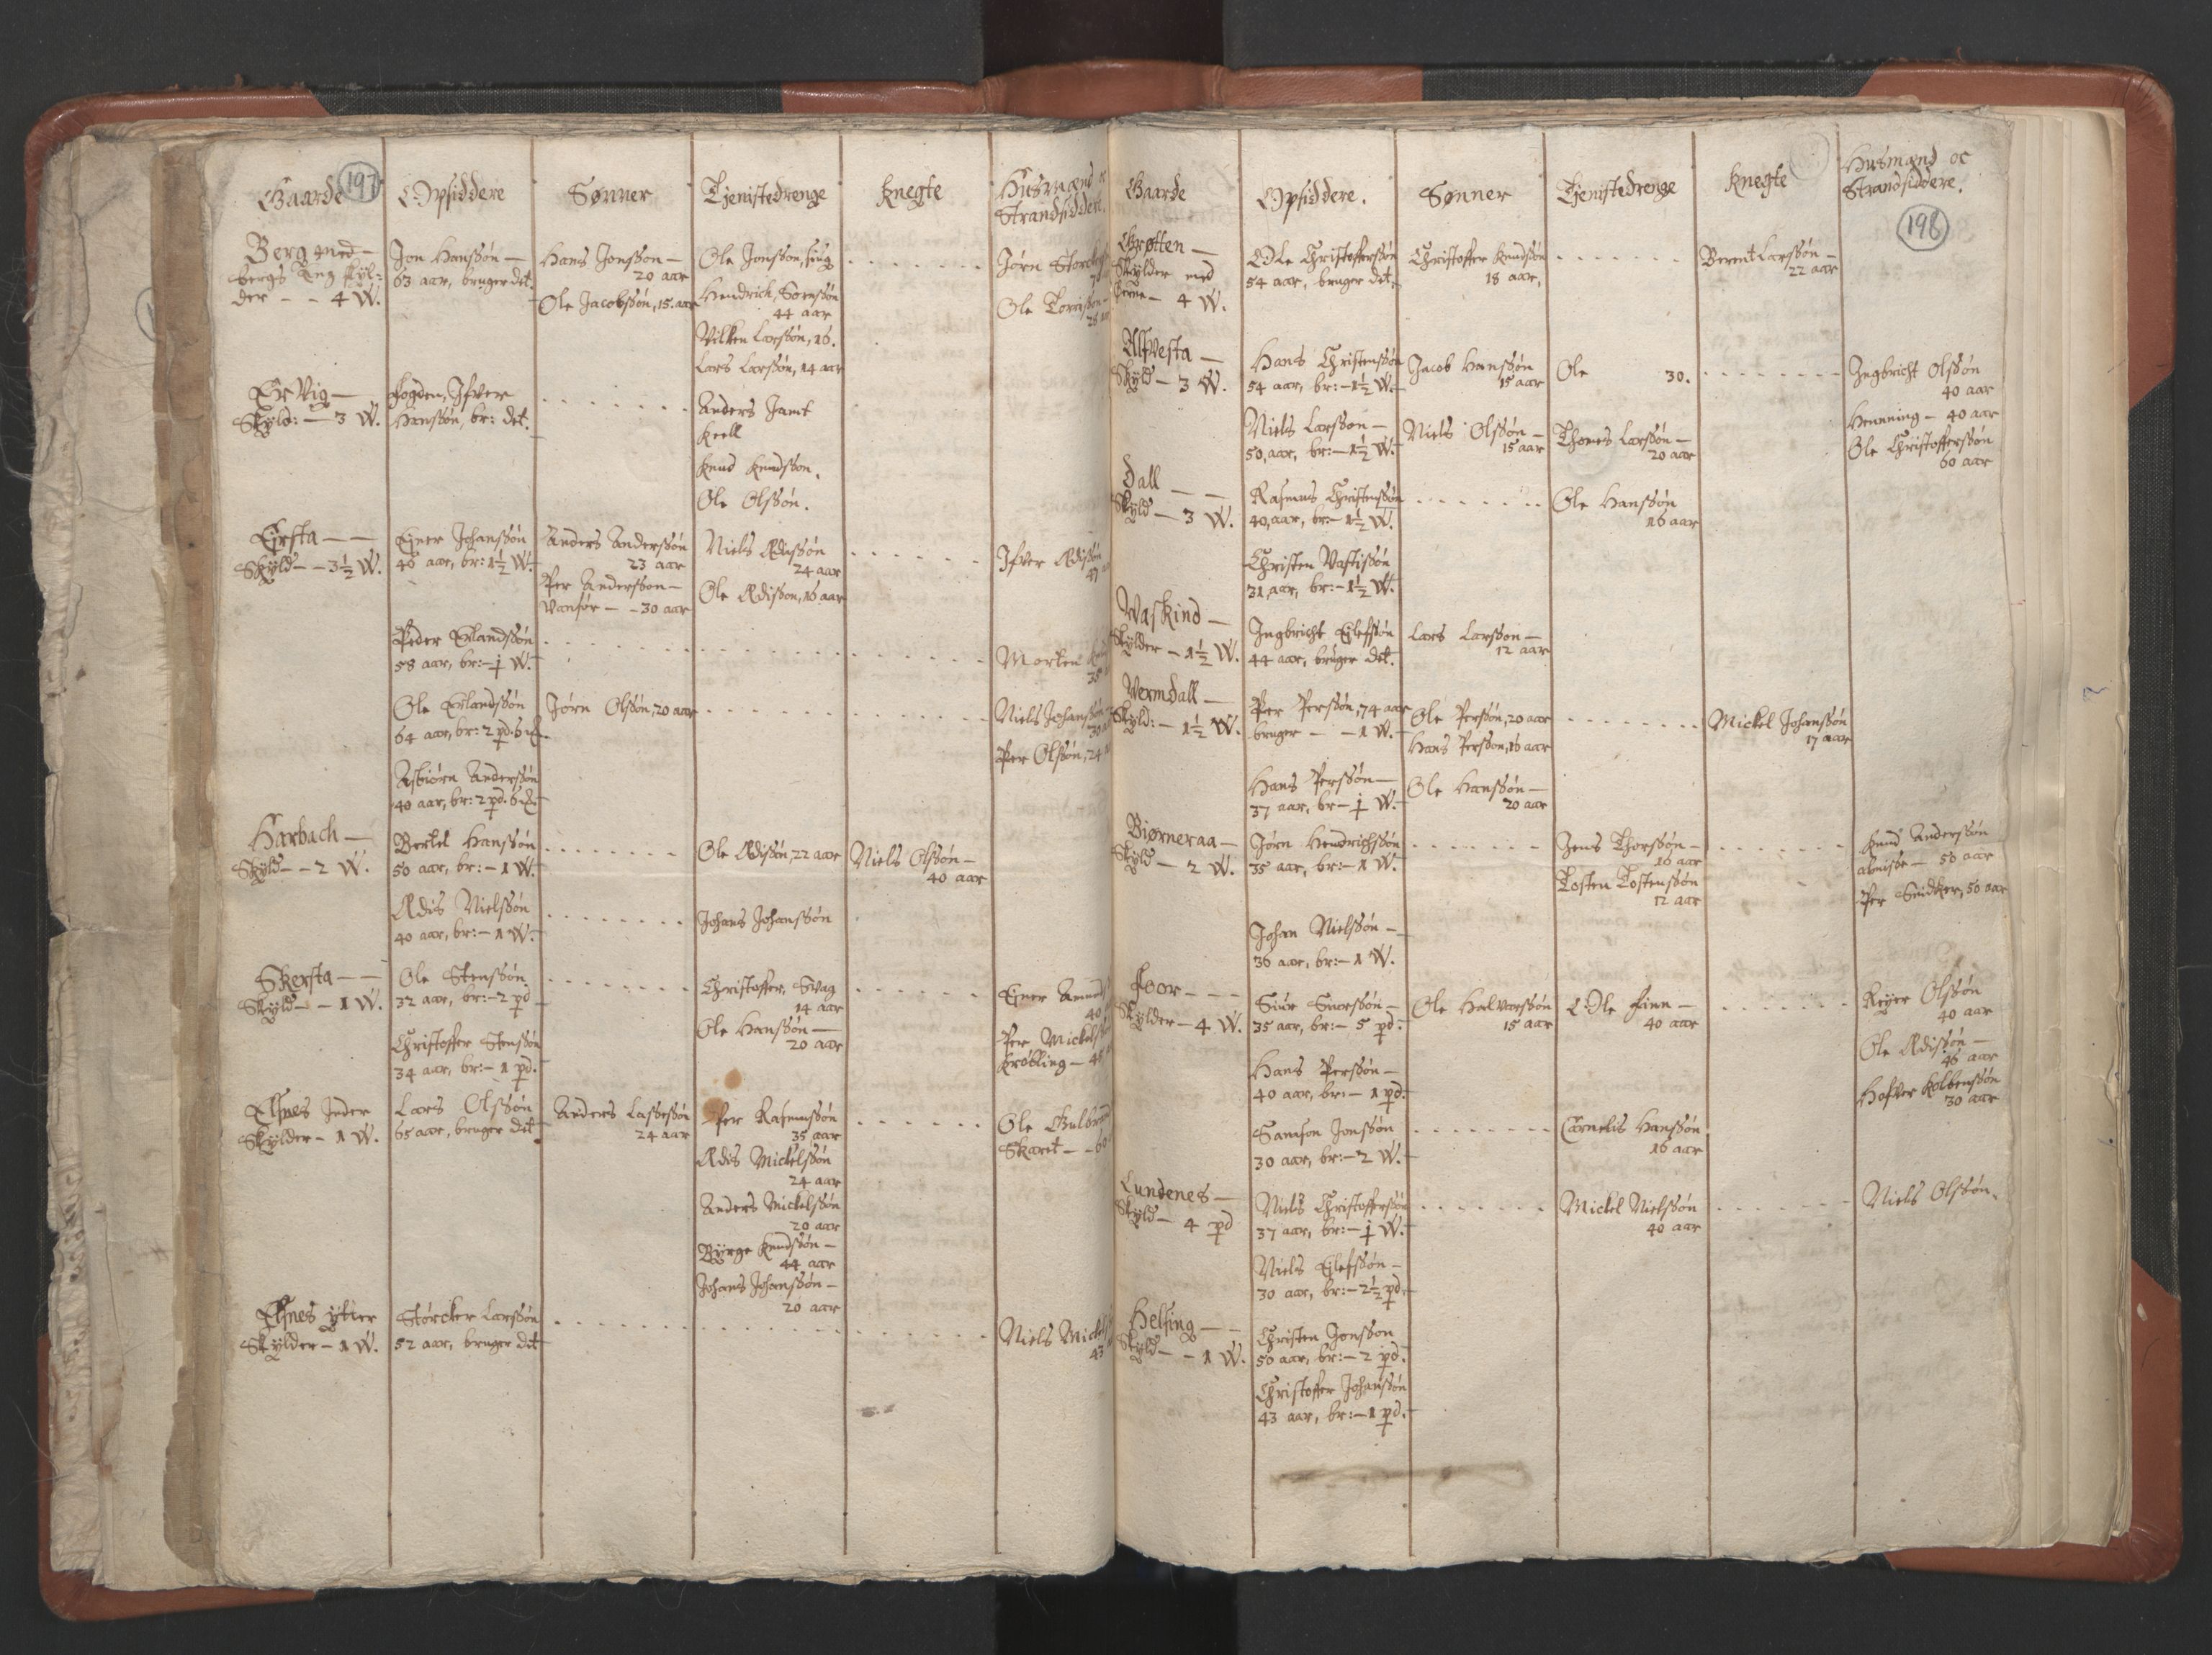 197
Gaarde
Opsiddere
Sønner
Tjenistedrenge
Knegte
Husmænd oc
Strandsiddere.
Berg med —
bergs Eng skyl:
der - - 4 W.
Jon Hanssøn —
63 aar, bruger det.
Hans Jonssøn —
20 aar
Ole Jacobssøn, 15. aar
Ole Jonssøn, siug
Hendrich Sørenssøn
44 aar
Villken Larssøn, 16.
Lars Larssøn, 14 aar
Jørn
Ole
Er Vig —
Skyld: — 3 W.
Fogden, Ifver
Hanssøn, br: det.
Anders Jamt
Keell
Knud Knudssøn.
Ole Olssøn.
Ersta — —
Skyld - - 3½ W.
Ejner Johanssøn
40 aar, br: 1½ W.
Anders Anderssøn
23 aar
Per Anderssøn —
Vanfør - - 30 aar
Niels Ædissøn
24 aar
Ole Ædissøn, 16 aar
Ifver Ædissøn
Peder Erlandssøn
58 aar, br: - 1 W.
Morten
Ole Erlandssøn
64 aar, br: 2 pd. 6
Jørn Olssøn, 20 aar
Niels Johanssøn
Per Olssøn, 24
Asbiørn Anderssøn
40 aar, br: 2 pd. 6
Harbach —
Skyld - - 2 W.
Bertel Hanssøn
50 aar, br: - 1 W.
Ole Ædissøn, 22 aar
Niels Olssøn —
40 aar
Ædis Nielssøn
40 aar, br: - 1 W.
Johans Johanssøn
Skersta — —
Skyld - - 1 W.
Ole Stenssøn
32 aar, br: - 2 pd
Christoffer, Svag
14 aar
Ole Hanssøn —
20 aar
Ejner
Per
Krøbling -
Christoffer Stenssøn
34 aar, br: - 1 pd.
Elfnes Inder
Skylder - 1 W.
Lars Olssøn
65 aar, bruger det
Anders Lassessøn
24 aar
Per Rasmussøn
35 aar
Ædis Mickelssøn
24 aar
Anders Mickelssøn
20 aar
Byrge Knudssøn —
44 aar
Johans Johanssøn —
20 aar
Ole
Skaret -
Elfnes ytter
Skylder - 1 W.
Størcker Larssøn
52 aar, bruger det
Niels
43
198
Gaarde
Opsiddere.
Sønner
Tjenistedrenge
Knegte
Husmænd oc
Strandsiddere.
Grøtten —
Skylder med
- 4 W.
Ole Christofferssøn
54 aar, bruger det.
Christoffer Knudssøn
18 aar.
Bernt Larssøn —
22 aar
Alfvesta —
Skyld - 3 W.
Hans Christenssøn
54 aar, br: - 1½ W.
Jacob Hanssøn
15 aar
Ole 30.
Ingbricht Olssøn
40 aar
Henning - 40 aar
Ole Christofferssøn
60 aar
Niels Larssøn —
50, aar, br: - 1½ W.
Niels Olssøn —
15 aar
Thomes Larssøn —
20 aar
Dall — —
Skyld - 3 W.
Rasmus Christenssøn
40, aar, br: - 1½ W.
Ole Hanssøn
16 aar
Christen Vastissøn
31, aar, br: - 1½ W.
Waskind —
Skylder - 1½ W.
Ingbricht Ejlefssøn
44 aar, bruger det.
Lars Larssøn —
12 aar
Vermdall —
Skyld: - 1½ W.
Per Perssøn, 74 aar
bruger - - 1 W.
Ole Perssøn, 20 aar
Hans Perssøn, 16 aar
Mickel Johanssøn
17 aar
Hans Perssøn —
37 aar, br - 1 W.
Ole Hanssøn —
20 aar
Biørneraa —
Skyld - 2 W.
Jørn Hendrichssøn
35 aar, br: - 1 W.
Jens Thorssøn —
16 aar
Tosten Tostenssøn
12 aar
Knud Anderssøn
almisse - 50 aar
Per Snidker, 50 aar
Johan Nielssøn —
36 aar, br: - 1 W.
Foor - - -
Skylder - 4 W.
Siur Snorssøn —
35 aar, br: - 5 pd.
Ole Halvorssøn
15 aar
Ole Finn —
40 aar
Rejer Olssøn
40 aar
Ole Ædissøn —
46 aar
Hafver Kolbenssøn
30 aar
Hans Perssøn —
40 aar, br: - 1 pd.
Samson Jonssøn
30 aar, br: - 2 W.
Cornelis Hanssøn
16 aar
Lundenes —
Skyld - 4 pd
Niels Christofferssøn
37 aar, br: - 1 W.
Mickel Nielssøn
40 aar
Niels Olssøn.
Niels Ejlefssøn —
30 aar, br: - 2½ pd.
Helfing — —
Skyld - - 1 W.
Christen Jonssøn
50 aar, br: - 2 pd.
Christoffer Johanssøn
43 aar, br: - 1 pd.